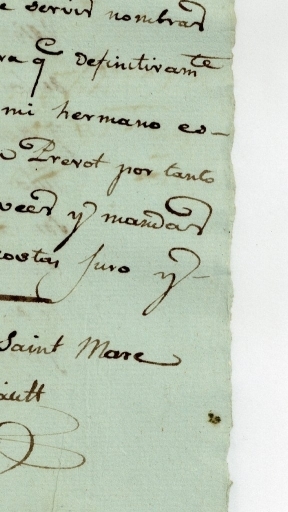 e servir nombrar
ra q̃ definitivam.te
mi hermano co-
Prevot por tanto
veer y mandar
costas juro y-
Saint Marc
ault